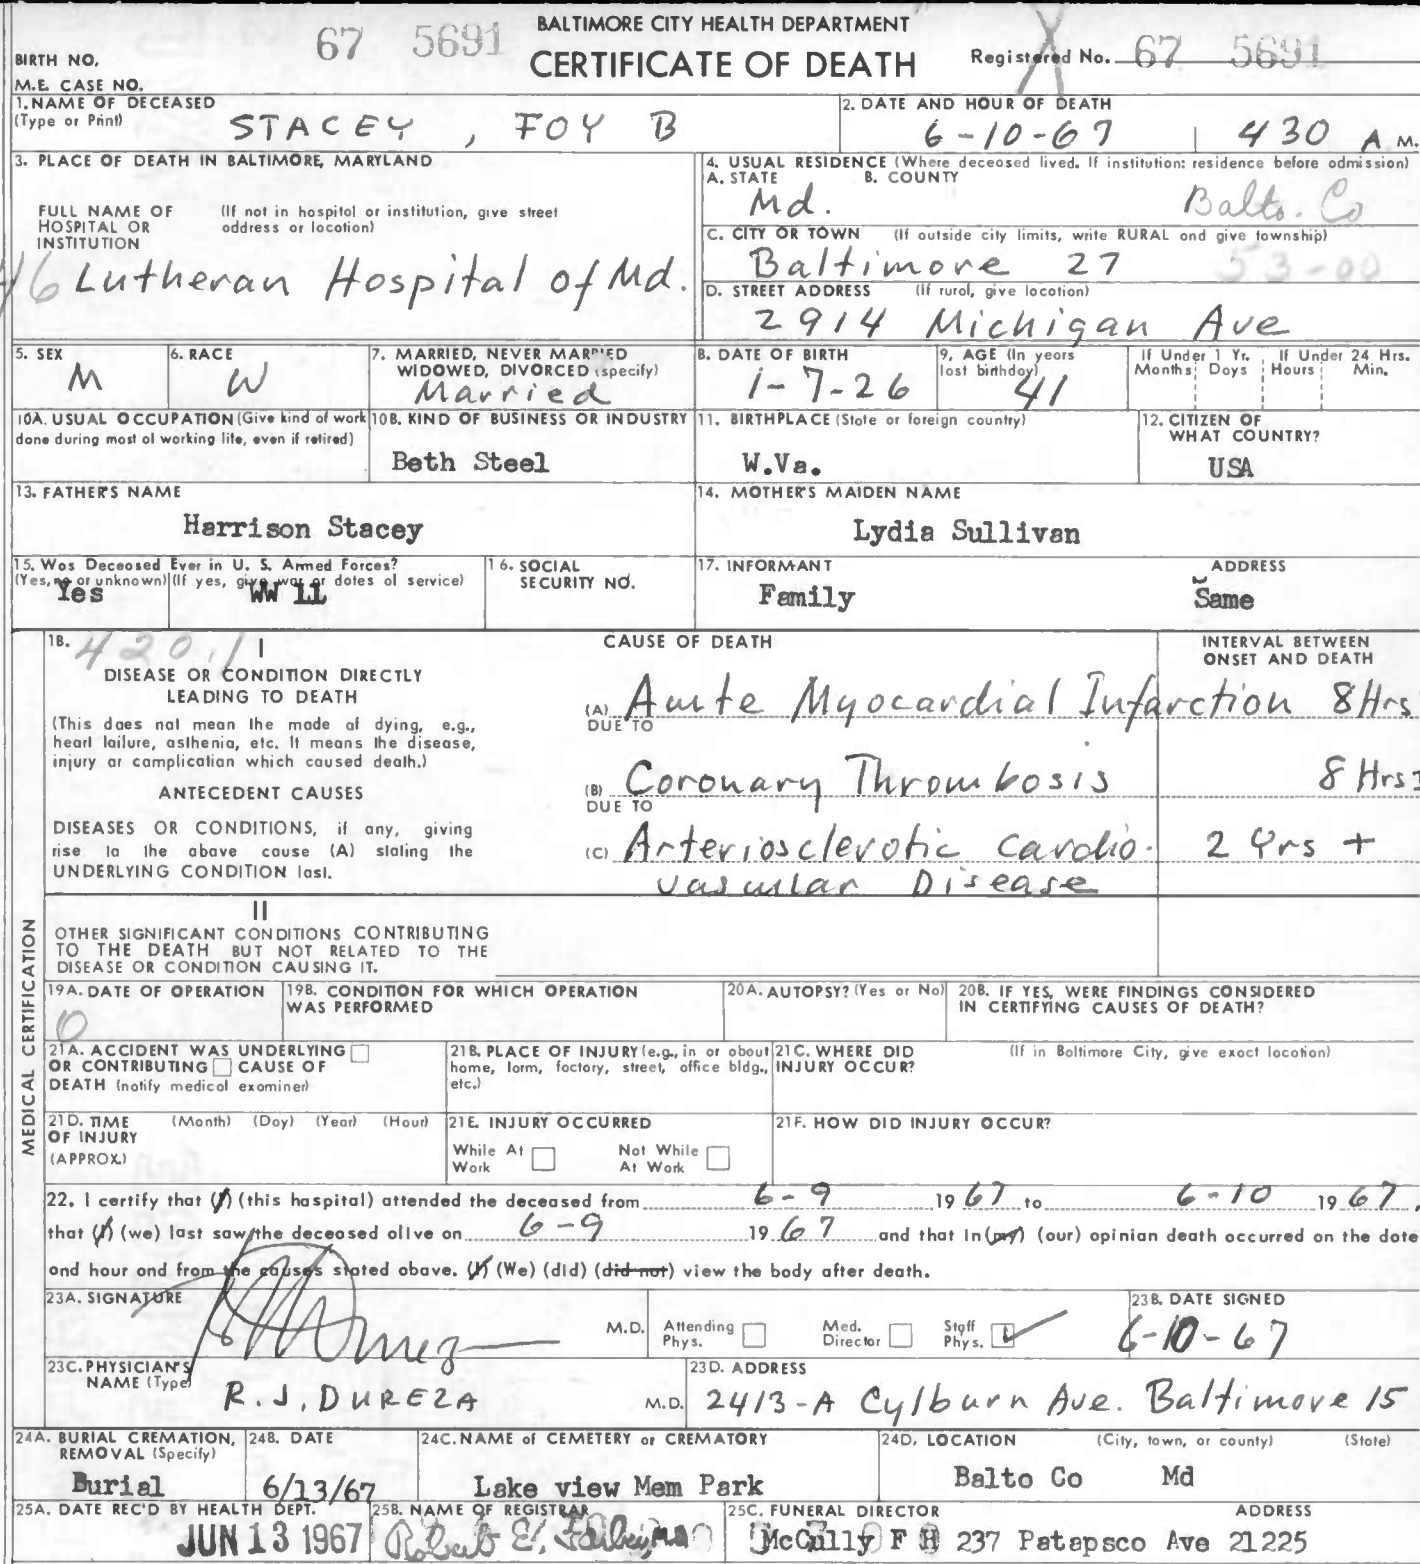 BALTIMORE CITY HEALTH DEPARTMENT
67 5691
CERTIFICATE OF DEATH
Registered No. 67 5691
BIRTH NO.
M.E. CASE NO.
1. NAME OF DECEASED
(Type or Print)
STACEY, FOY B
2. DATE AND HOUR OF DEATH
6-10-67 | 430 A M.
3. PLACE OF DEATH IN BALTIMORE, MARYLAND
FULL NAME OF HOSPITAL OR INSTITUTION
(If not in hospital or institution, give street address or location)
Lutheran Hospital of Md.
4. USUAL RESIDENCE (Where deceased lived. If institution: residence before admission)
A. STATE B. COUNTY
Md. Balto. Co
C. CITY OR TOWN (If outside city limits, write RURAL and give township)
Baltimore 27 53-00
D. STREET ADDRESS (If rural, give location)
2914 Michigan Ave
5. SEX
M
6. RACE
W
7. MARRIED, NEVER MARRIED
WIDOWED, DIVORCED (specify)
Married
8. DATE OF BIRTH
1-7-26
9. AGE (In years
last birthday)
41
If Under 1 Yr.
Months Days
If Under 24 Hrs.
Hours Min.
10A. USUAL OCCUPATION (Give kind of work
done during most of working life, even if retired)
10B. KIND OF BUSINESS OR INDUSTRY
Beth Steel
11. BIRTHPLACE (State or foreign country)
W.Va.
12. CITIZEN OF
WHAT COUNTRY?
USA
13. FATHER'S NAME
Harrison Stacey
14. MOTHER'S MAIDEN NAME
Lydia Sullivan
15. Was Deceased Ever in U. S. Armed Forces?
(Yes, no or unknown) (If yes, give war or dates of service)
Yes WW 11
16. SOCIAL
SECURITY NO.
17. INFORMANT ADDRESS
Family Same
MEDICAL CERTIFICATION
18. 420.1 I
DISEASE OR CONDITION DIRECTLY
LEADING TO DEATH
(This does not mean the mode of dying, e.g.,
heart failure, asthenia, etc. It means the disease,
injury or complication which caused death.)
ANTECEDENT CAUSES
DISEASES OR CONDITIONS, if any, giving
rise to the above cause (A) stating the
UNDERLYING CONDITION last.
CAUSE OF DEATH
INTERVAL BETWEEN
ONSET AND DEATH
(A) Acute Myocardial Infarction 8 Hrs
DUE TO
(B) Coronary Thrombosis 8 Hrs
DUE TO
(C) Arteriosclerotic Cardio- 2 Yrs +
vascular Disease
II
OTHER SIGNIFICANT CONDITIONS CONTRIBUTING
TO THE DEATH BUT NOT RELATED TO THE
DISEASE OR CONDITION CAUSING IT.
19A. DATE OF OPERATION
0
19B. CONDITION FOR WHICH OPERATION
WAS PERFORMED
20A. AUTOPSY? (Yes or No)
20B. IF YES, WERE FINDINGS CONSIDERED
IN CERTIFYING CAUSES OF DEATH?
21A. ACCIDENT WAS UNDERLYING
OR CONTRIBUTING CAUSE OF
DEATH (notify medical examiner)
21B. PLACE OF INJURY (e.g., in or about
home, farm, factory, street, office bldg.,
etc.)
21C. WHERE DID (If in Baltimore City, give exact location)
INJURY OCCUR?
21D. TIME (Month) (Day) (Year) (Hour)
OF INJURY
(APPROX.)
21E. INJURY OCCURRED
While At Work Not While At Work
21F. HOW DID INJURY OCCUR?
22. I certify that (I) (this hospital) attended the deceased from 6-9 1967 to 6-10 1967,
that (I) (we) last saw the deceased alive on 6-9 1967 and that in (my) (our) opinian death occurred on the date
and hour and from the causes stated above. (I) (We) (did) (did not) view the body after death.
23A. SIGNATURE
M.D. Attending Phys. Med. Director Staff Phys.
23B. DATE SIGNED
6-10-67
23C. PHYSICIAN'S
NAME (Type)
R. J. DUREZA M.D.
23D. ADDRESS
2413-A Cylburn Ave. Baltimore 15
24A. BURIAL CREMATION,
REMOVAL (Specify)
Burial
24B. DATE
6/13/67
24C. NAME of CEMETERY or CREMATORY
Lake view Mem Park
24D. LOCATION (City, town, or county) (State)
Balto Co Md
25A. DATE REC'D BY HEALTH DEPT.
JUN 13 1967
25B. NAME OF REGISTRAR
Robert E. Farber, MD
25C. FUNERAL DIRECTOR ADDRESS
McCully F H 237 Patapsco Ave 21225